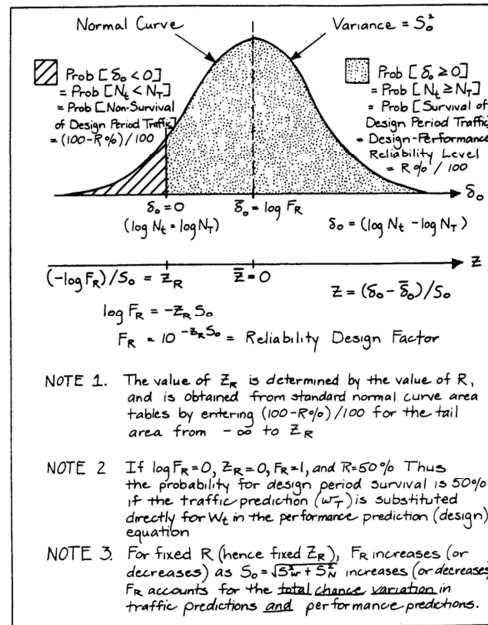 Normal Curve
Variance = S₀²
Prob [δ₀ < 0]
= Prob [Nt < NT]
= Prob [Non-Survival
of Design Period Traffic]
= (100-R%)/100
Prob [δ₀ ≥ 0]
= Prob [Nt ≥ NT]
= Prob [Survival of
Design Period Traffic]
= Design-Performance
Reliability Level
= R%/100
δ₀
δ₀ = 0
δ̄₀ = log FR
(log Nt = log NT)
δ₀ = (log Nt - log NT)
Z
(-log FR)/S₀ = ZR
Z̄ = 0
Z = (δ₀ - δ̄₀)/S₀
log FR = -ZR S₀
FR = 10^-ZR S₀ = Reliability Design Factor
NOTE 1. The value of ZR is determined by the value of R,
and is obtained from standard normal curve area
tables by entering (100-R%)/100 for the tail
area from -∞ to ZR
NOTE 2 If log FR = 0, ZR = 0, FR = 1, and R = 50% Thus
the probability for design period survival is 50%
if the traffic prediction (wT) is substituted
directly for Wt in the performance prediction (design)
equation
NOTE 3. For fixed R (hence fixed ZR), FR increases (or
decreases) as S₀ = √S²w + S²N increases (or decreases)
FR accounts for the total chance variation in
traffic predictions and performance predictions.